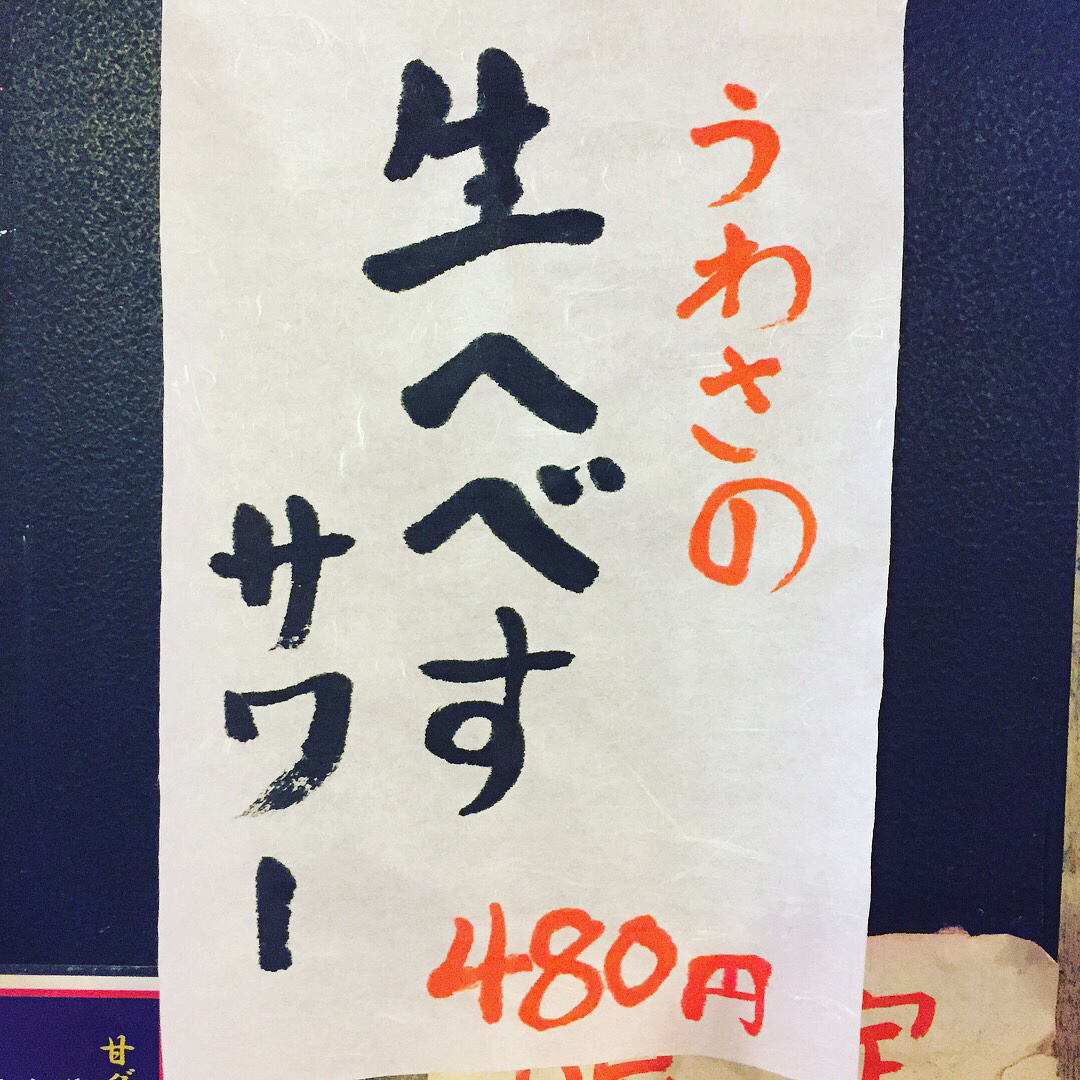 うわさの
生へべす
サワー
480円